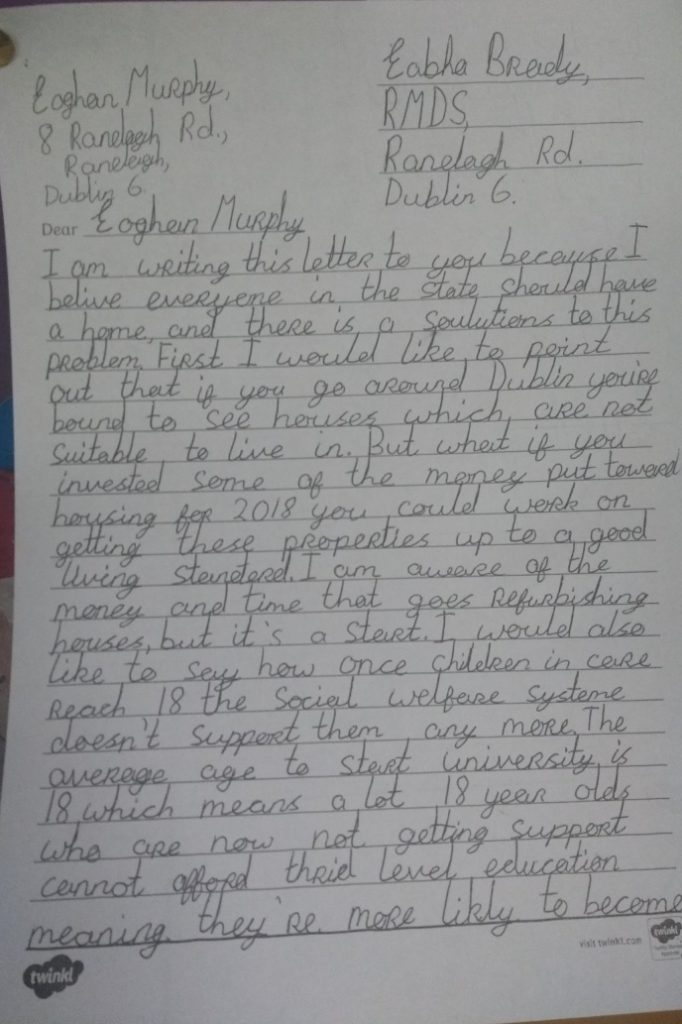 Eoghan Murphy,
8 Ranelagh Rd.,
Raneleigh,
Dublin 6.
Eabha Brady,
RMDS,
Ranelagh Rd.
Dublin 6.
Dear Eoghan Murphy
I am writing this letter to you because I
belive everyone in the state should have
a home, and there is a soulutions to this
problem. First I would like to point
out that if you go around Dublin you're
bound to see houses which are not
suitable to live in. But what if you
invested some of the money put toward
housing for 2018 you could work on
getting these properties up to a good
living standerd. I am aware of the
money and time that goes refurbishing
houses, but it's a start. I would also
like to say how once children in care
reach 18 the social welfare systeme
doesn't support them any more. The
average age to start university is
18 which means a lot 18 year olds
who are now not getting support
cannot afford thrid level education
meaning they're more likly to become
twinkl
visit twinkl.com
twinkl